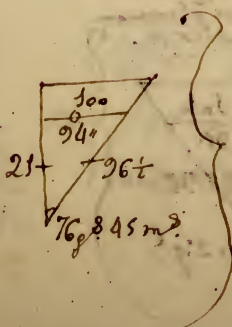 100
94"
21 96½
76g.s 45 m.s